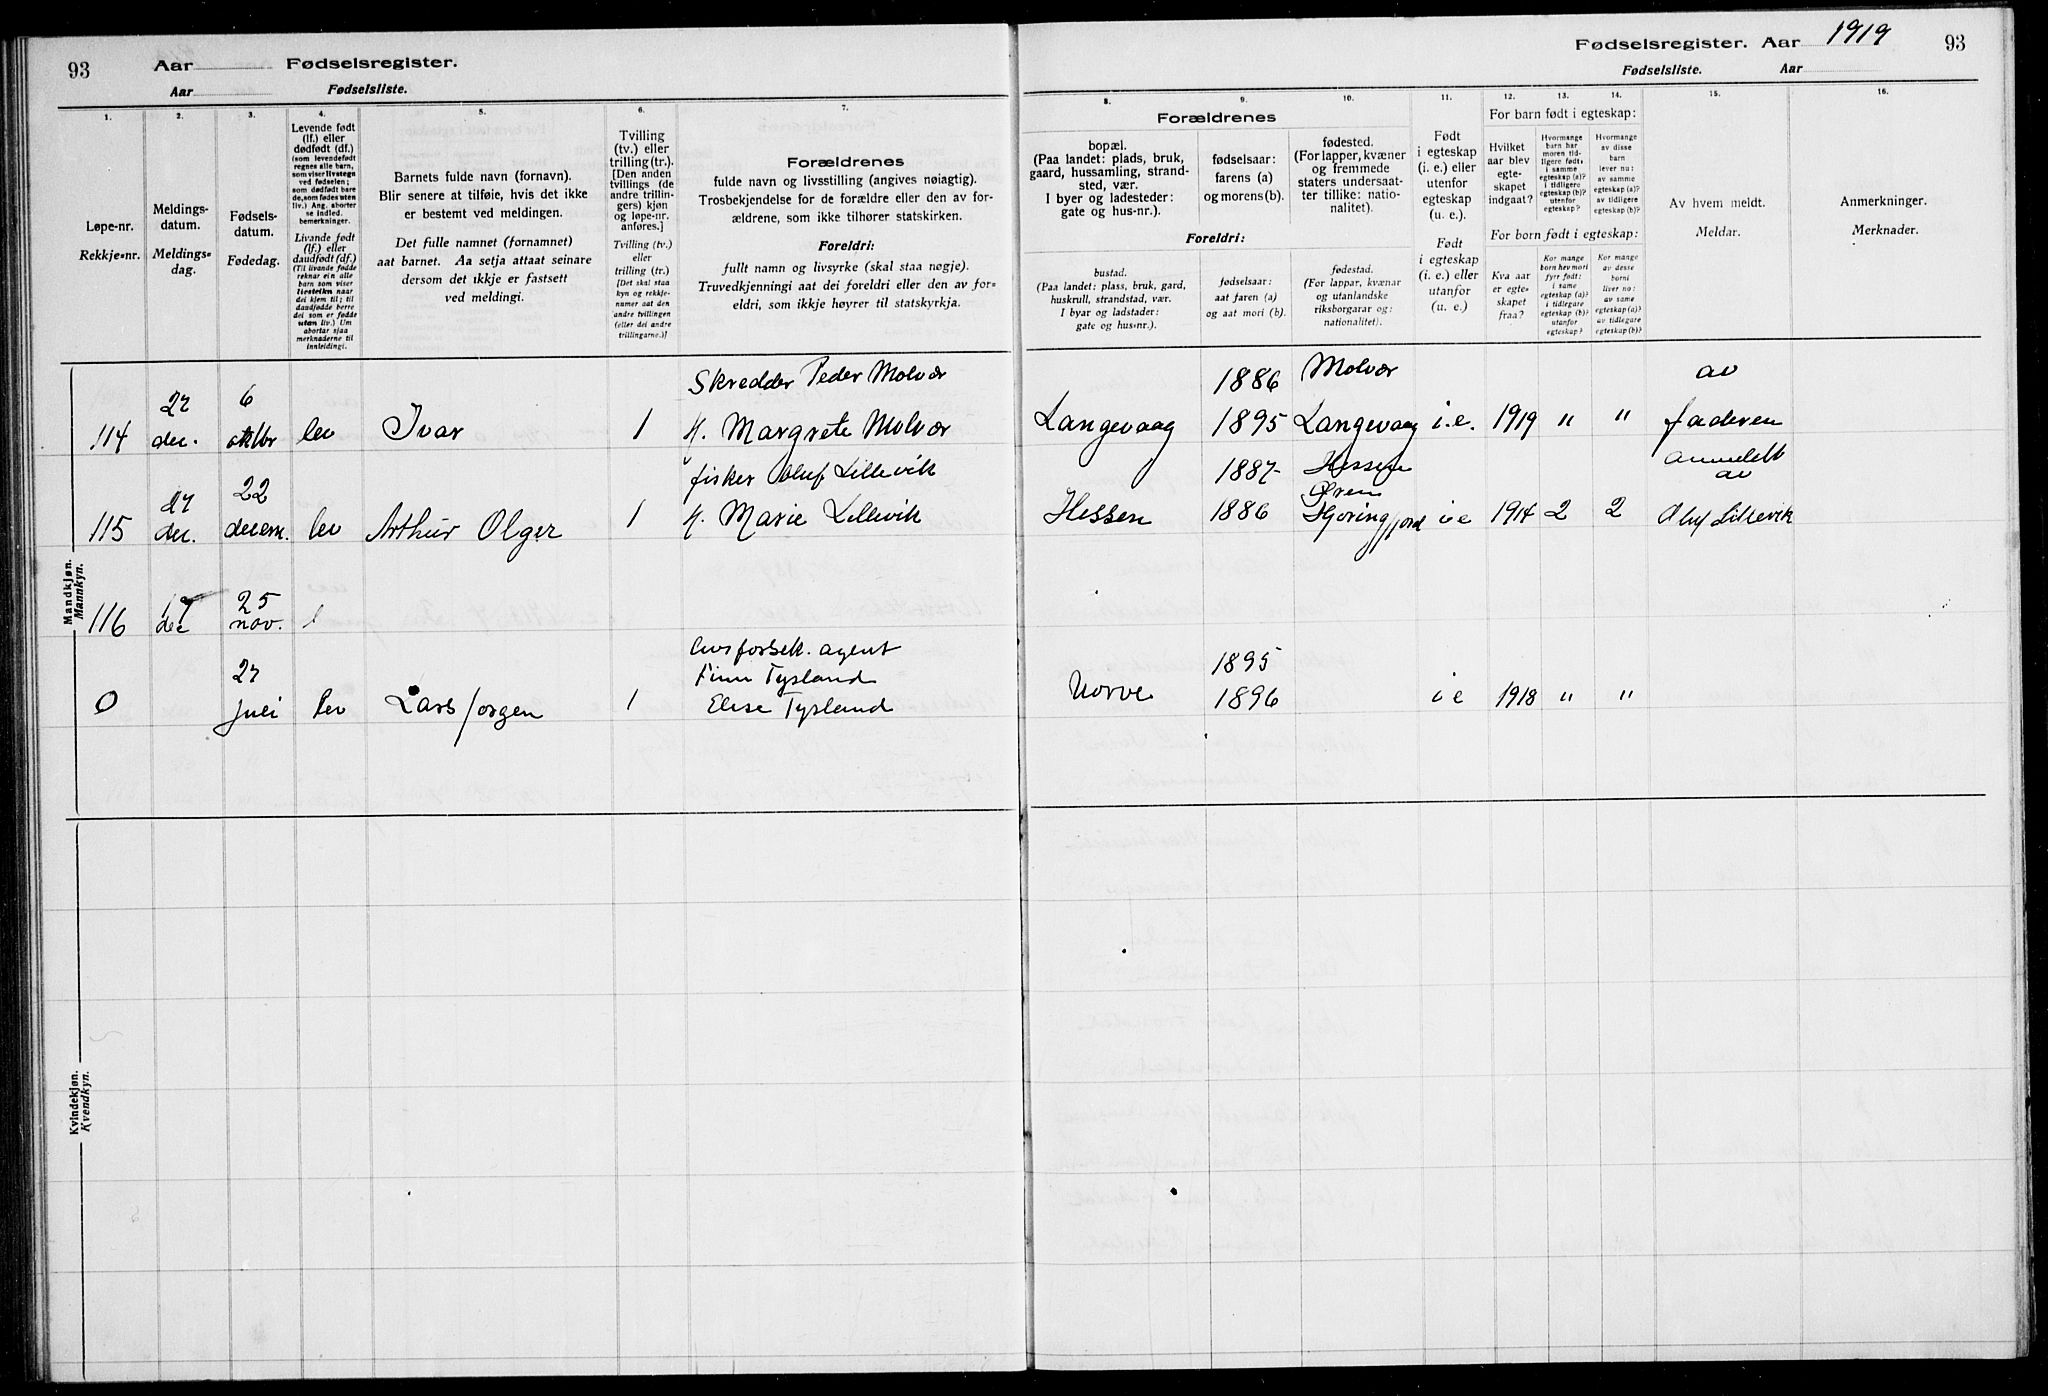 93
Aar
Fødselsregister.
Aar
Fødselsliste.
1.
Løpe-nr.
Rekkje-nr.
2.
Meldings-
datum.
Meldings-
dag.
3.
Fødsels-
datum.
Fødedag.
4.
Levende født
(lf.) eller
dødfødt (df.)
(som levendefødt
regnes alle barn,
som viser livstegn
ved fødselen;
som dødfødt bare
de, som fødes uten
liv.) Ang. aborter
se indled.
bemerkninger.
Livande født
(lf.) eller
daudfødt (df.)
(Til livande fødde
reknar ein alle
barn som viser
livsteikn naar
dei kjem til; til
daudfødde berre
dei som er fødde
utan liv.) Um
abortar sjaa
merknaderne til
innleidingi.
5.
Barnets fulde navn (fornavn).
Blir senere at tilføie, hvis det ikke
er bestemt ved meldingen.
Det fulle namnet (fornamnet)
aat barnet. Aa setja attaat seinare
dersom det ikkje er fastsett
ved meldingi.
6.
Tvilling
(tv.) eller
trilling (tr.).
[Den anden
tvillings (de
andre trillin-
gers) kjøn
og løpe-nr.
anføres.]
Tvilling (tv.)
eller
trilling (tr.)
[Det skal staa
kyn og rekkje-
numer aat den
andre tvillingen
(eller dei andre
trillingarne.)]
7.
Forældrenes
fulde navn og livsstilling (angives nøiagtig).
Trosbekjendelse for de forældre eller den av for-
ældrene, som ikke tilhører statskirken.
Foreldri:
fullt namn og livsyrke (skal staa nøgje).
Truvedkjenningi aat dei foreldri eller den av for-
eldri, som ikkje høyrer til statskyrkja.
Fødselsregister. Aar 1919
93
Fødselsliste. Aar
8.
9.
10.
Forældrenes
bopæl.
(Paa landet: plads, bruk,
gaard, hussamling, strand-
sted, vær.
I byer og ladesteder:
gate og hus-nr.).
fødselsaar:
farens (a)
og morens (b).
fødested.
(For lapper, kvæner
og fremmede
staters undersaat-
ter tillike: natio-
nalitet).
Foreldri:
bustad.
(Paa landet: plass, bruk, gard,
huskrull, strandstad, vær.
I byar og ladstader:
gate og hus-nr.).
fødselsaar:
aat faren (a)
og aat mori (b).
fødestad.
(For lappar, kvænar
og utanlandske
riksborgarar og:
nationalitet).
11.
Født
i egteskap
(i. e.) eller
utenfor
egteskap
(u. e.).
Født
i egteskap
(i. e.) eller
utanfor
(u. e.)
12.
13.
14.
For barn født i egteskap:
Hvilket
aar blev
egte-
skapet
indgaat?
Hvormange
barn har
moren tid-
ligere født,
i samme
egteskap (a)?
i tidligere
egteskap (b)?
utenfor
egteskap?
Hvormange
av disse
barn
lever nu:
av samme
egteskap (a)?
av tidligere
egteskap (b)?
For born født i egteskap:
Kva aar
er egte-
skapet
fraa?
Kor mange
born hev mori
fyrr født:
i same
egteskap (a)?
i tidlegare
egteskap (b)?
utanfor
egteskap?
Kor mange
av desse
borni
liver no:
av same
egteskap (a)?
av tidlegare
egteskap (b)?
15.
Av hvem meldt.
Meldar.
16.
Anmerkninger.
Merknader.
Mandkjøn.
Mannkyn.
114 27 dec. 6 oktbr lev Ivar 1 Skredder Peder Molvær
H. Margrete Molvær
Langevaag 1886 Molvær
1895 Langevaag i.e. 1919 " " av faderen
115 27 dec. 22 decem. lev Arthur Olger 1 fisker Oluf Lillevik
H. Marie Lillevik
Hessen 1887 Hessen
1886 i e 1914 2 2 anmeldt av Oluf Lillevik
116 dec 25 nov. l
0 27 Juli lev Lars Jorgen 1 agent
Finn Tysland
Elise Tysland
Norve 1895
1896 i e 1918 " "
Kvindekjøn.
Kvendkyn.